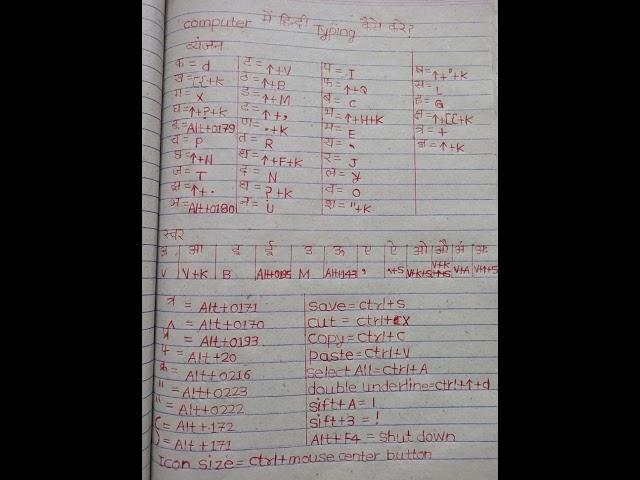 computer में हिन्दी Typing कैसे करे?
व्यंजन
क = d
ख = [{+K
ग = X
घ = ↑+?+K
ङ = Alt+0179
च = P
छ = ↑+N
ज = T
झ = ↑+·
ञ = Alt+0180
ट = ↑+V
ठ = ↑+B
ड = ↑+M
ढ = ↑+,
ण = ·+K
त = R
थ = ↑+F+K
द = N
ध = ?+K
न = U
प = I
फ = ↑+Q
ब = C
भ = ↑+H+K
म = E
य = ,
र = J
ल = Y
व = O
श = "+K
ष = ↑+"+K
स = L
ह = G
क्ष = ↑+[{+K
त्र = +
ज्ञ = ↑+K
स्वर
अ आ इ ई उ ऊ ए ऐ ओ औ अं अः
V V+K B Alt+0195 M Alt+143 , ,+S V+K+S V+K+↑+S V+A
= Alt+0171
= Alt+0170
= Alt+0193
= Alt+20
= Alt+0216
" = Alt+0223
" = Alt+0222
= Alt+172
= Alt+171
save = ctrl+S
cut = ctrl+X
copy = ctrl+C
paste = ctrl+V
select All = ctrl+A
double underline = ctrl+↑+d
sift+A = ।
sift+3 = !
Alt+F4 = shut down
Icon size = ctrl+mouse center button